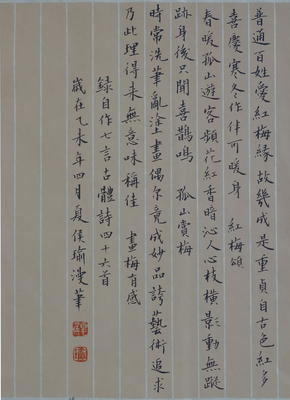 普通百姓愛紅梅緣故幾成是重貞自古色紅多
喜慶寒冬作伴可暖身 紅梅頌
春暖孤山遊客頻花紅香暗沁人心枝橫影動無蹤
跡身後只聞喜鵲鳴 孤山賞梅
時常洗筆亂塗上畫偶尔竟成妙品誇藝術追求
乃此理得來無意味稱佳 畫梅有感
錄自作七言古體詩四十六首
歲在乙未年四月夏侯瑜漫筆